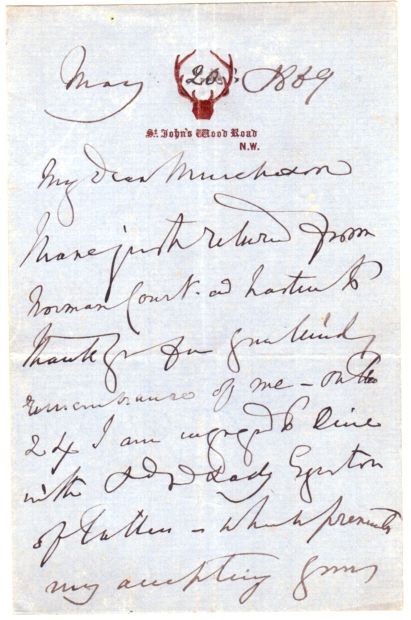 May 20 1869
St. John's Wood Road
N.W.
My dear Murchison
I have just returned from
Norman Court and hasten to
thank you for your kindly
remembrance of me - on the
24 I am engaged to dine
with Ld and Lady Egerton
of Tatton - which prevents
my accepting yours